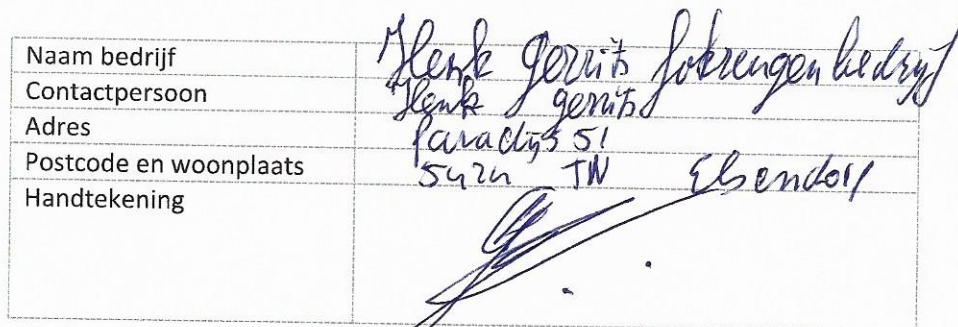 Naam bedrijf Henk Gerrits fokzeugenbedrijf
Contactpersoon Henk Gerrits
Adres Paradijs 51
Postcode en woonplaats 5424 TN Elsendorp
Handtekening